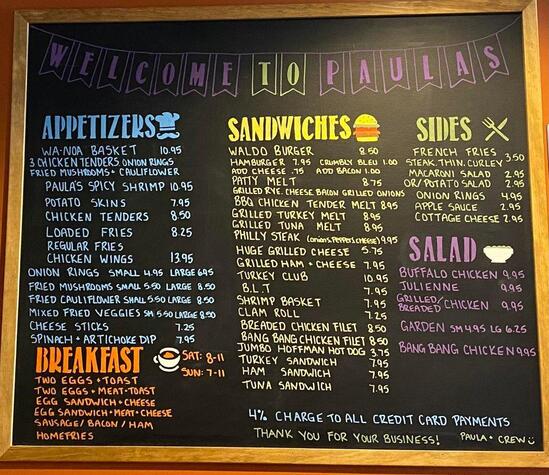 WELCOME TO PAULAS
APPETIZERS
WA-NOA BASKET 10.95
3 CHICKEN TENDERS, ONION RINGS
FRIED MUSHROOMS + CAULIFLOWER
PAULA'S SPICY SHRIMP 10.95
POTATO SKINS 7.95
CHICKEN TENDERS 8.50
LOADED FRIES 8.25
REGULAR FRIES
CHICKEN WINGS 13.95
ONION RINGS SMALL 4.95 LARGE 6.95
FRIED MUSHROOMS SMALL 5.50 LARGE 8.50
FRIED CAULIFLOWER SMALL 5.50 LARGE 8.50
MIXED FRIED VEGGIES SM 5.50 LARGE 8.50
CHEESE STICKS 7.25
SPINACH + ARTICHOKE DIP 7.95
BREAKFAST
SAT: 8-11
SUN: 7-11
TWO EGGS + TOAST
TWO EGGS + MEAT + TOAST
EGG SANDWICH + CHEESE
EGG SANDWICH + MEAT + CHEESE
SAUSAGE / BACON / HAM
HOMEFRIES
SANDWICHES
WALDO BURGER 8.50
HAMBURGER 7.95 CRUMBLY BLEU 1.00
ADD CHEESE .75 ADD BACON 1.00
PATTY MELT 8.75
GRILLED RYE, CHEESE, BACON GRILLED ONIONS
BBQ CHICKEN TENDER MELT 8.95
GRILLED TURKEY MELT 8.95
GRILLED TUNA MELT 8.95
PHILLY STEAK (ONIONS, PEPPERS, CHEESE) 9.95
HUGE GRILLED CHEESE 5.75
GRILLED HAM + CHEESE 7.95
TURKEY CLUB 10.95
B.L.T 7.95
SHRIMP BASKET 7.95
CLAM ROLL 7.25
BREADED CHICKEN FILET 8.50
BANG BANG CHICKEN FILET 8.50
JUMBO HOFFMAN HOT DOG 3.75
TURKEY SANDWICH 7.95
HAM SANDWICH 7.95
TUNA SANDWICH 7.95
SIDES
FRENCH FRIES
STEAK, THIN, CURLEY 3.50
MACARONI SALAD 2.95
OR/POTATO SALAD 2.95
ONION RINGS 4.95
APPLE SAUCE 2.95
COTTAGE CHEESE 2.95
SALAD
BUFFALO CHICKEN 9.95
JULIENNE 9.95
GRILLED/
BREADED CHICKEN 9.95
GARDEN SM 4.95 LG 6.25
BANG BANG CHICKEN 9.95
4% CHARGE TO ALL CREDIT CARD PAYMENTS
THANK YOU FOR YOUR BUSINESS! PAULA + CREW